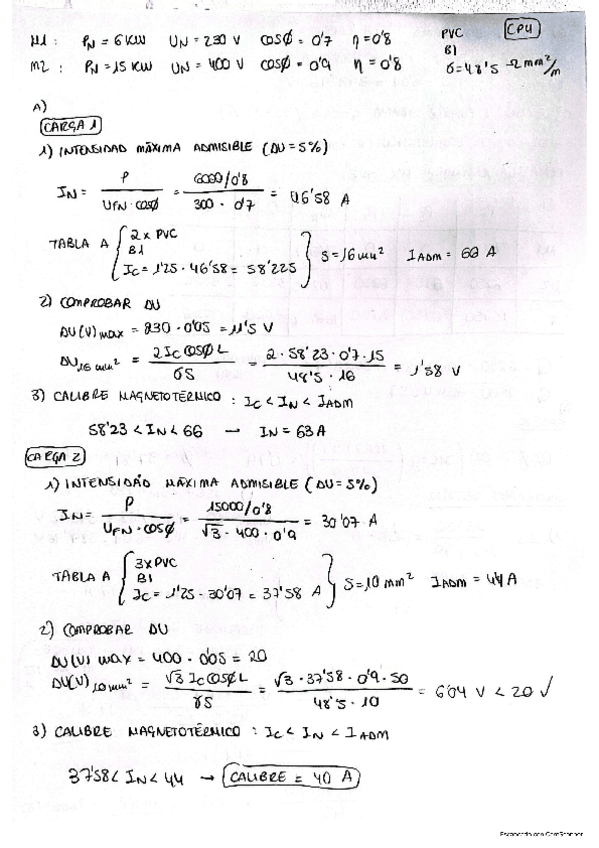 M1: PN = 6 KW UN = 230 V COSφ = 0'7 η = 0'8 PVC CPU
M2: PN = 15 KW UN = 400 V COSφ = 0'9 η = 0'8 B1
σ = 48'5 Ω mm²/m
A)
CARGA 1
1) INTENSIDAD MÁXIMA ADMISIBLE (DU = 5%)
IN = P / UFN · COSφ = 6000/0'8 / 300 · 0'7 = 46'58 A
TABLA A { 2 x PVC
B1
IC = 1'25 · 46'58 = 58'225 } S = 16 mm² IADM = 66 A
2) COMPROBAR DU
DU(V) max = 230 · 0'05 = 11'5 V
DU16 mm² = 2 IC COSφ L / σS = 2 · 58'23 · 0'7 · 15 / 48'5 · 16 = 1'58 V
3) CALIBRE MAGNETOTÉRMICO : IC < IN < IADM
58'23 < IN < 66 → IN = 63 A
CARGA 2
1) INTENSIDAD MÁXIMA ADMISIBLE (DU = 5%)
IN = P / UFN · COSφ = 15000/0'8 / √3 · 400 · 0'9 = 30'07 A
TABLA A { 3 x PVC
B1
IC = 1'25 · 30'07 = 37'58 A } S = 10 mm² IADM = 44 A
2) COMPROBAR DU
DU(V) max = 400 · 0'05 = 20
DU(V) 10 mm² = √3 IC COSφ L / σS = √3 · 37'58 · 0'9 · 50 / 48'5 · 10 = 6'04 V < 20 √
3) CALIBRE MAGNETOTÉRMICO : IC < IN < IADM
37'58 < IN < 44 → CALIBRE = 40 A
Escaneado con CamScanner